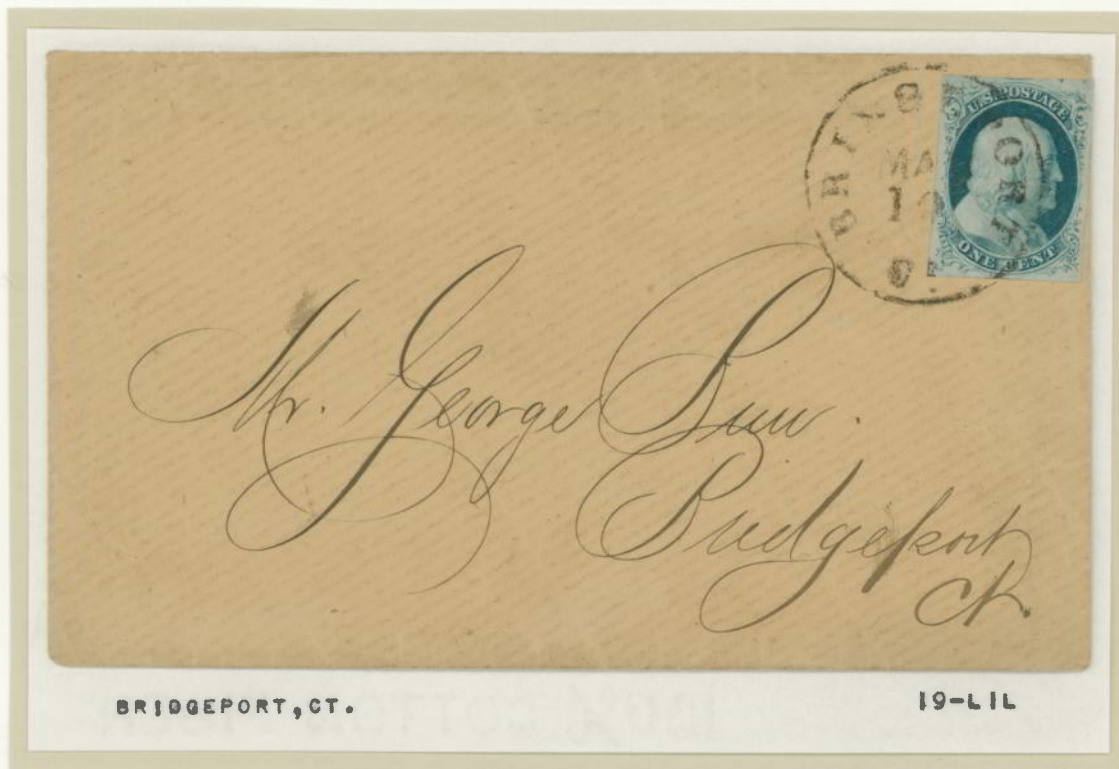 BRIDGEPORT
MA
CT.
U.S. POSTAGE
ONE CENT
Mr. George Burr.
Bridgeport
Ct.
BRIDGEPORT, CT.
19-L1L